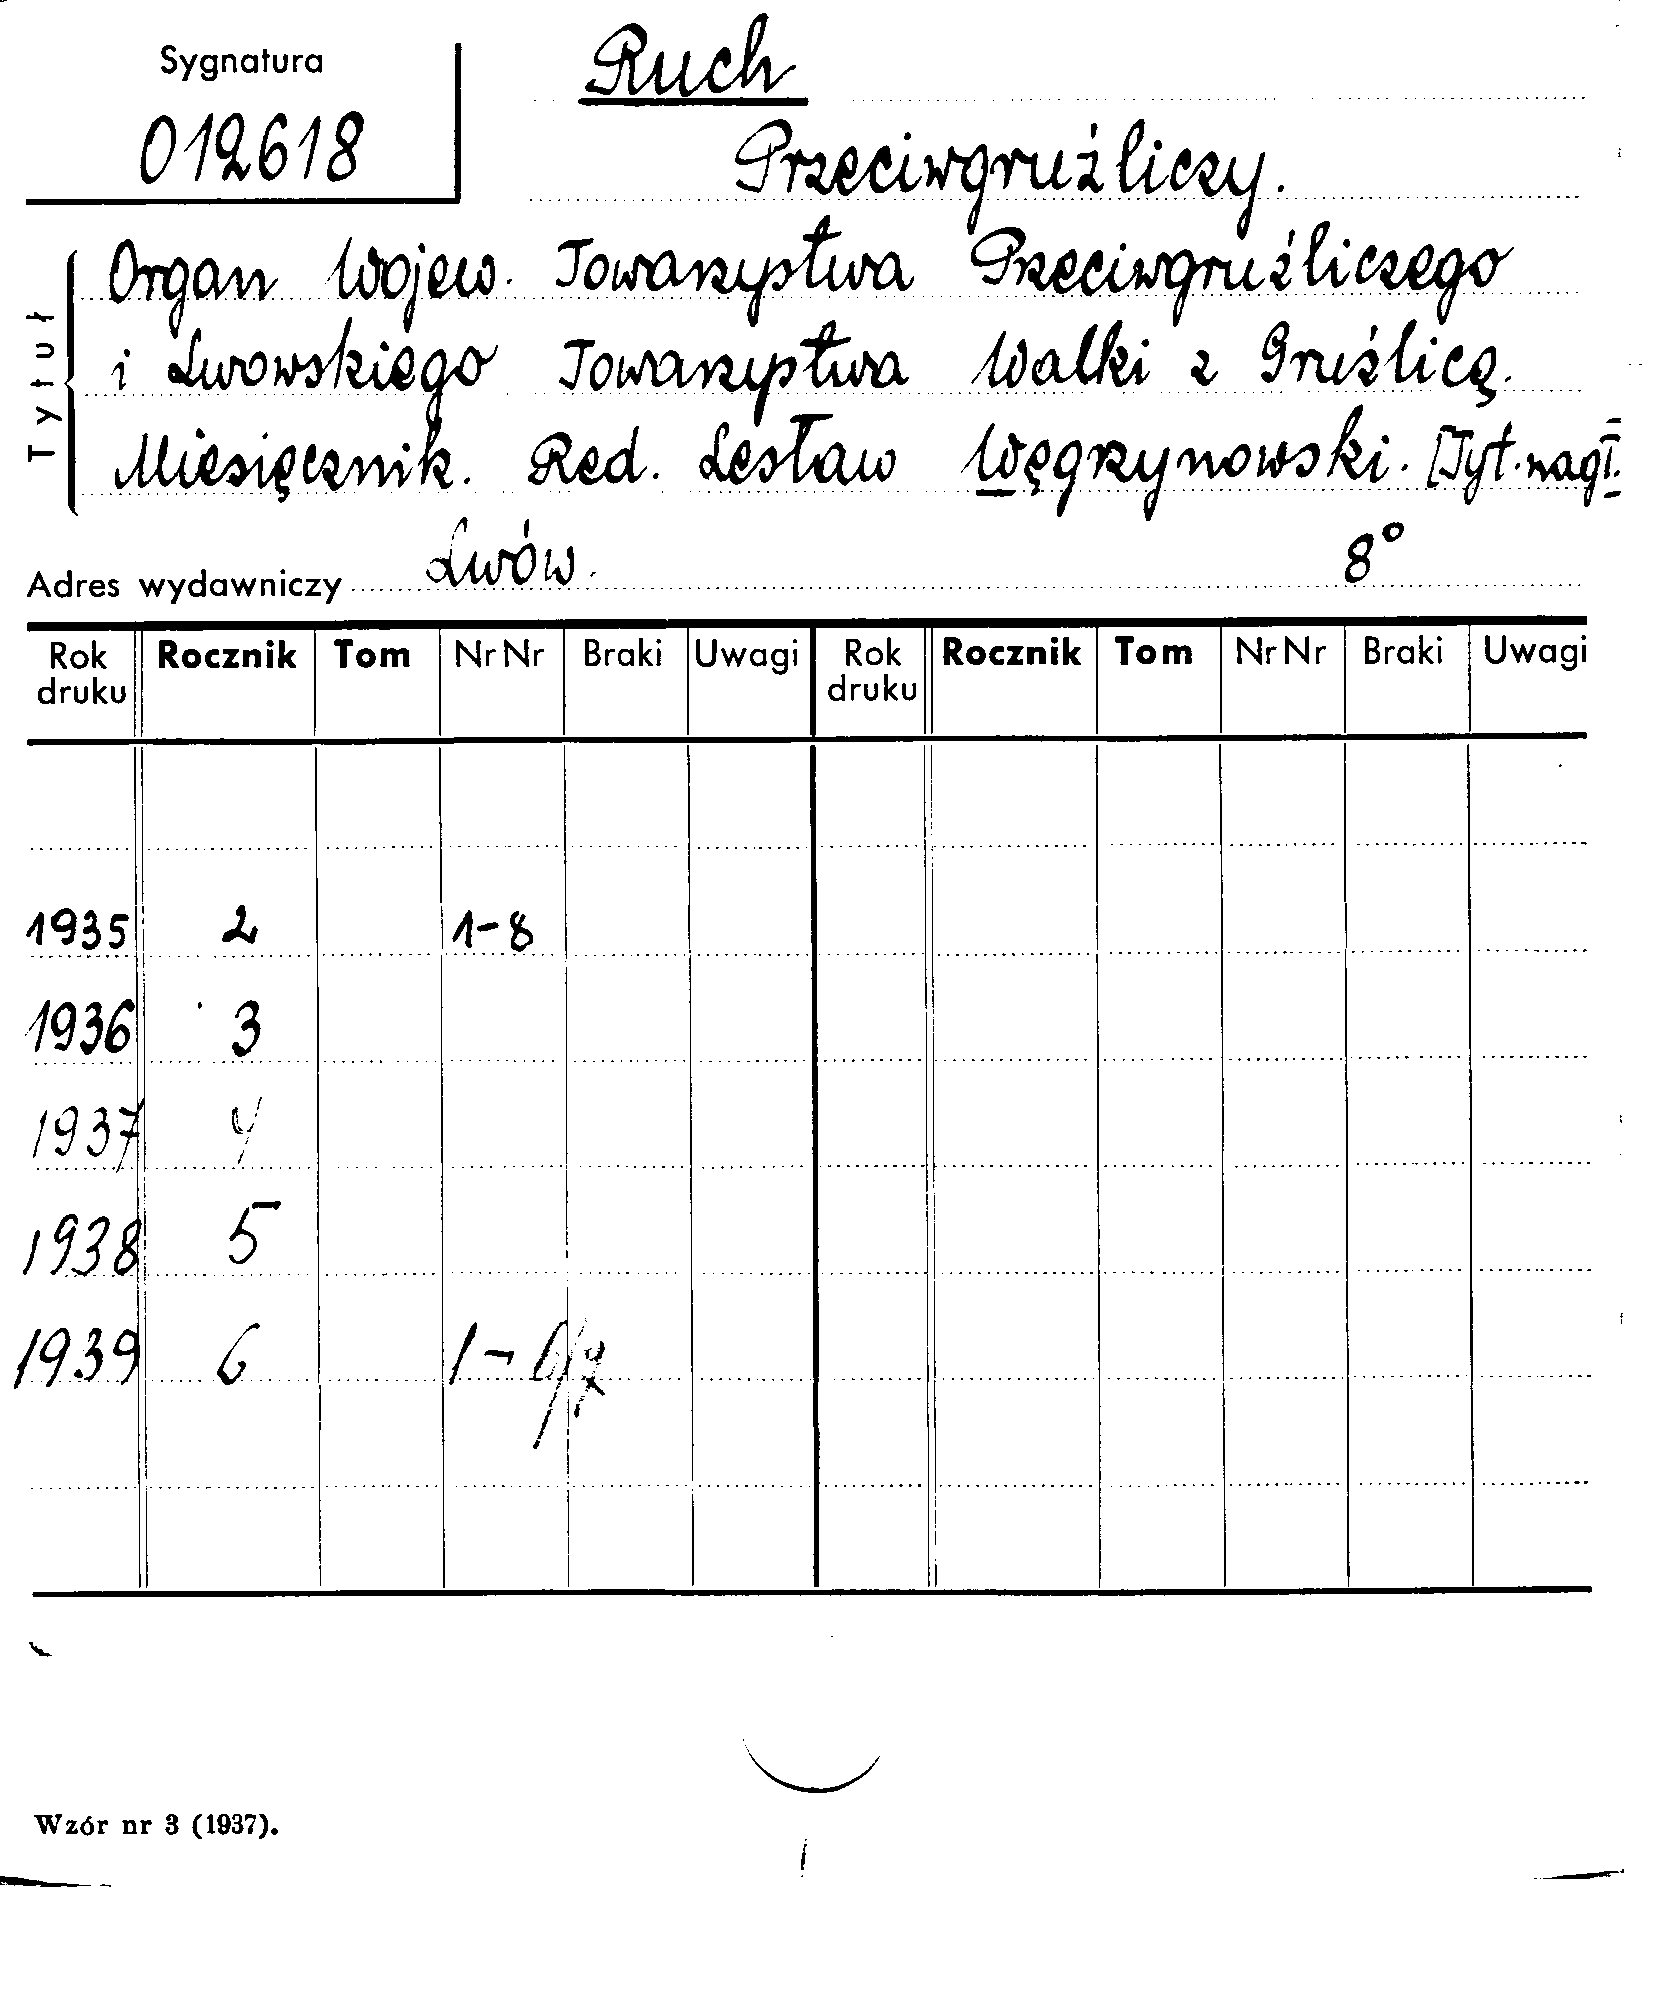 Sygnatura
012618
Ruch
Przeciwgruźliczy.
Tytuł
Organ Wojew. Towarzystwa Przeciwgruźliczego
i Lwowskiego Towarzystwa Walki z Gruźlicą.
Miesięcznik. Red. Lesław Węgrzynowski. [Tyt. nagł.
Adres wydawniczy Lwów. 8°
Rok druku Rocznik Tom Nr Nr Braki Uwagi Rok druku Rocznik Tom Nr Nr Braki Uwagi
1935 2 1-8
1936 3
1937 4
1938 5
1939 6 1-6/7
Wzór nr 3 (1937).